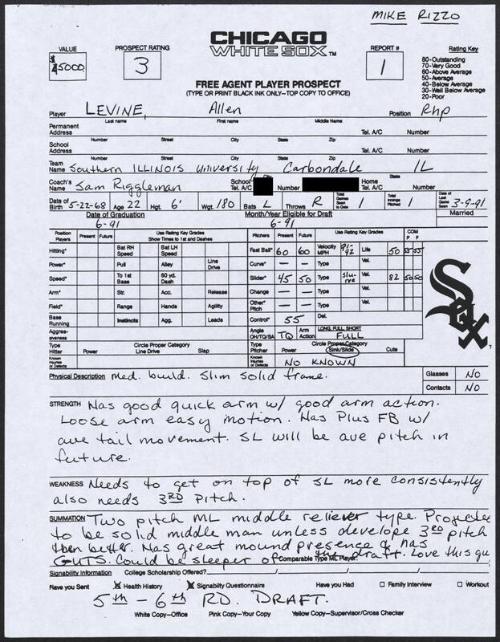 MIKE RIZZO
VALUE
$5000
PROSPECT RATING
3
CHICAGO
WHITE SOX
REPORT #
1
Rating Key
80-Outstanding
70-Very Good
60-Above Average
50-Average
40-Below Average
30-Well Below Average
20-Poor
FREE AGENT PLAYER PROSPECT
(TYPE OR PRINT BLACK INK ONLY-TOP COPY TO OFFICE)
Player LEVINE, Allen Position Rhp
Last name First name Middle Name
Permanent Address Tel. A/C Number
Number Street City State Zip
School Address Tel. A/C Number
Number Street City State Zip
Team Name Southern ILLINOIS University Carbondale IL
Name City State
Coach's Name Sam Riggleman School Tel. A/C Number Home Tel. A/C Number
Date of Birth 5-22-68 Age 22 Hgt. 6' Wgt. 180 Bats L Throws R Total Games Seen 1 Total Innings Pitched 1 Date of Last Game 3-9-91
Date of Graduation Month/Year Eligible for Draft Married
6-91 6-91
Position Players Present Future Use Rating Key Grades Show Times to 1st and Dashes
Pitchers Present Future Use Rating Key Grades COM P F
Hitting* Bat RH Speed Bat LH Speed
Fast Ball* 60 60 Velocity MPH 91-92 Life 50 55 55
Power* Pull Alley Line Drive
Curve* Type Vel.
Speed* To 1st Base 60 yd. Dash
Slider* 45 50 Type Slurve Vel. 82 50 50
Arm* Str. Acc. Release
Change Type Vel.
Field* Range Hands Agility
Other* Pitch Type Del.
Base Running Instincts Agg. Leads
Control* 55
Aggressiveness
Angle OH/TQ/SA TQ Arm Action LONG, FULL, SHORT FULL
Type Hitter Circle Proper Category Power Line Drive Slap
Type Pitcher Circle Proper Category Power Sink/Slide Cute
Known Injuries or Defects
Known Injuries or Defects NO KNOWN
Sox
Physical Description med. build. slim solid frame.
Glasses NO
Contacts NO
STRENGTH Has good quick arm w/ good arm action.
Loose arm easy motion. Has Plus FB w/
ave tail movement. SL will be ave pitch in
future.
WEAKNESS Needs to get on top of SL more consistently
also needs 3RD Pitch.
SUMMATION Two pitch ML middle reliever type. Projectee
to be solid middle man unless develope 3RD pitch
then better. Has great mound presence & has
GUTS. Could be sleeper of the draft. Love this guy
Comparable Type ML Player
Signability Information College Scholarship Offered?
Have you Sent X Health History X Signability Questionnaire Have you Had Family Interview Workout
5th - 6th RD. DRAFT.
White Copy-Office Pink Copy-Your Copy Yellow Copy-Supervisor/Cross Checker